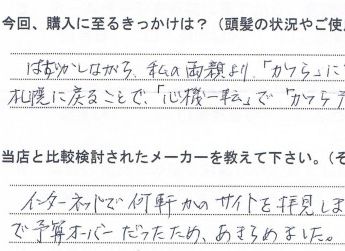 今回、購入に至るきっかけは？（頭髪の状況やご使
はずかしながら、私の両親より、「かつら」に
札幌に戻ることで、「心機一転」で「かつら
当店と比較検討されたメーカーを教えて下さい。（そ
インターネットで何軒かのサイトを拝見しま
で予算オーバーだったため、あきらめました。